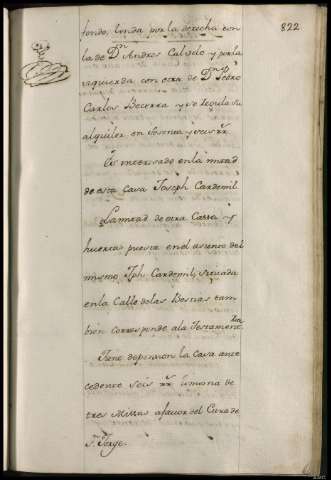 822
fondo, linda por la derecha con
la de Dn. Andres Calvelo y por la
izquierda con otra de Dn. Pedro
Carlos Becerra y se regula su
alquiler en sesenta y seis rr.
Es interesado en la mitad
de esta Casa Joseph Cardemil
La mitad de otra Cassa y
huerta puesta en el asiento del
mismo Jph Cardemil, situada
en la Calle de las Bestias tam
bien corresponde a la Testamentria
Tiene de pension la Casa ante
cedente seis rr. limosna de
tres Missas a favor del Cura de
Sn. Jorge.